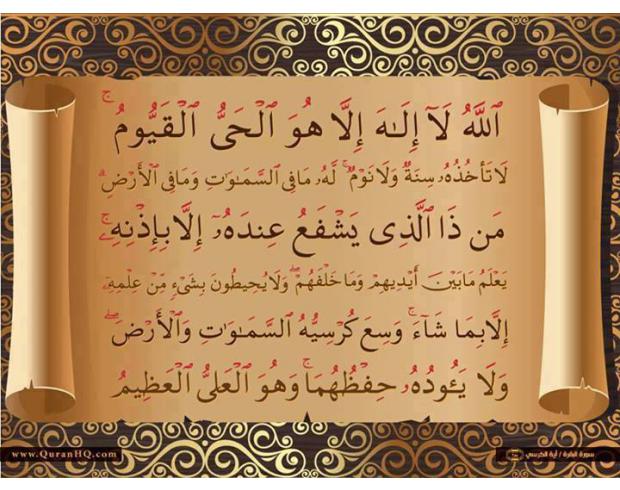 ٱللَّهُ لَآ إِلَـٰهَ إِلَّا هُوَ ٱلْحَىُّ ٱلْقَيُّومُ ۚ
لَا تَأْخُذُهُۥ سِنَةٌ وَلَا نَوْمٌ ۚ لَّهُۥ مَا فِى ٱلسَّمَـٰوَٰتِ وَمَا فِى ٱلْأَرْضِ ۗ
مَن ذَا ٱلَّذِى يَشْفَعُ عِندَهُۥٓ إِلَّا بِإِذْنِهِۦ ۚ
يَعْلَمُ مَا بَيْنَ أَيْدِيهِمْ وَمَا خَلْفَهُمْ ۖ وَلَا يُحِيطُونَ بِشَىْءٍ مِّنْ عِلْمِهِۦٓ
إِلَّا بِمَا شَآءَ ۚ وَسِعَ كُرْسِيُّهُ ٱلسَّمَـٰوَٰتِ وَٱلْأَرْضَ ۖ
وَلَا يَـُٔودُهُۥ حِفْظُهُمَا ۚ وَهُوَ ٱلْعَلِىُّ ٱلْعَظِيمُ
www.QuranHQ.com
سورة البقرة / آية الكرسي